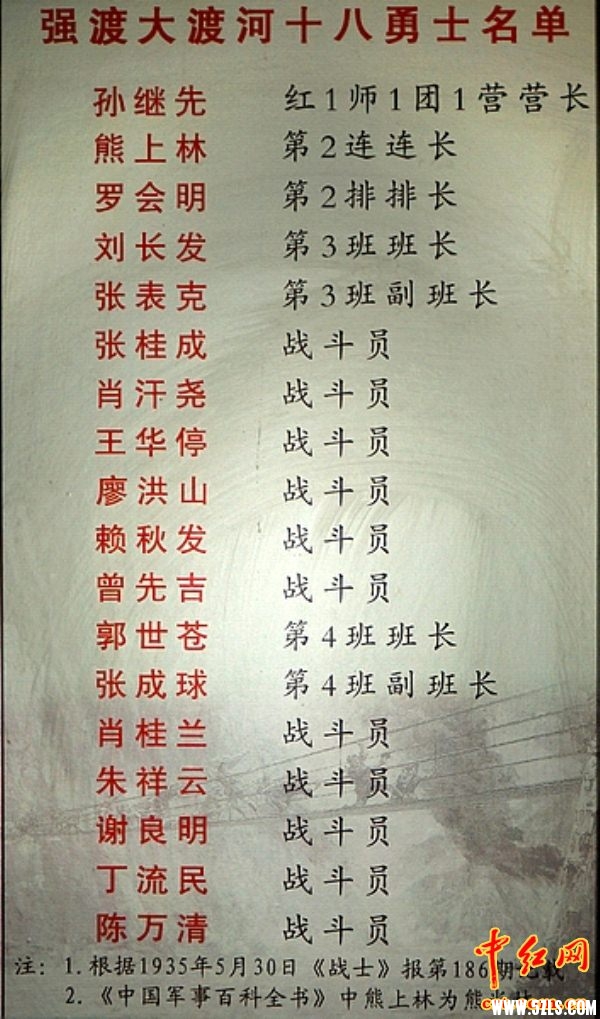 强渡大渡河十八勇士名单
孙继先 红1师1团1营营长
熊上林 第2连连长
罗会明 第2排排长
刘长发 第3班班长
张表克 第3班副班长
张桂成 战斗员
肖汗尧 战斗员
王华停 战斗员
廖洪山 战斗员
赖秋发 战斗员
曾先吉 战斗员
郭世苍 第4班班长
张成球 第4班副班长
肖桂兰 战斗员
朱祥云 战斗员
谢良明 战斗员
丁流民 战斗员
陈万清 战斗员
注：1.根据1935年5月30日《战士》报第186期记载
2.《中国军事百科全书》中熊上林为熊尚林
中红网
WWW.5ZLS.COM